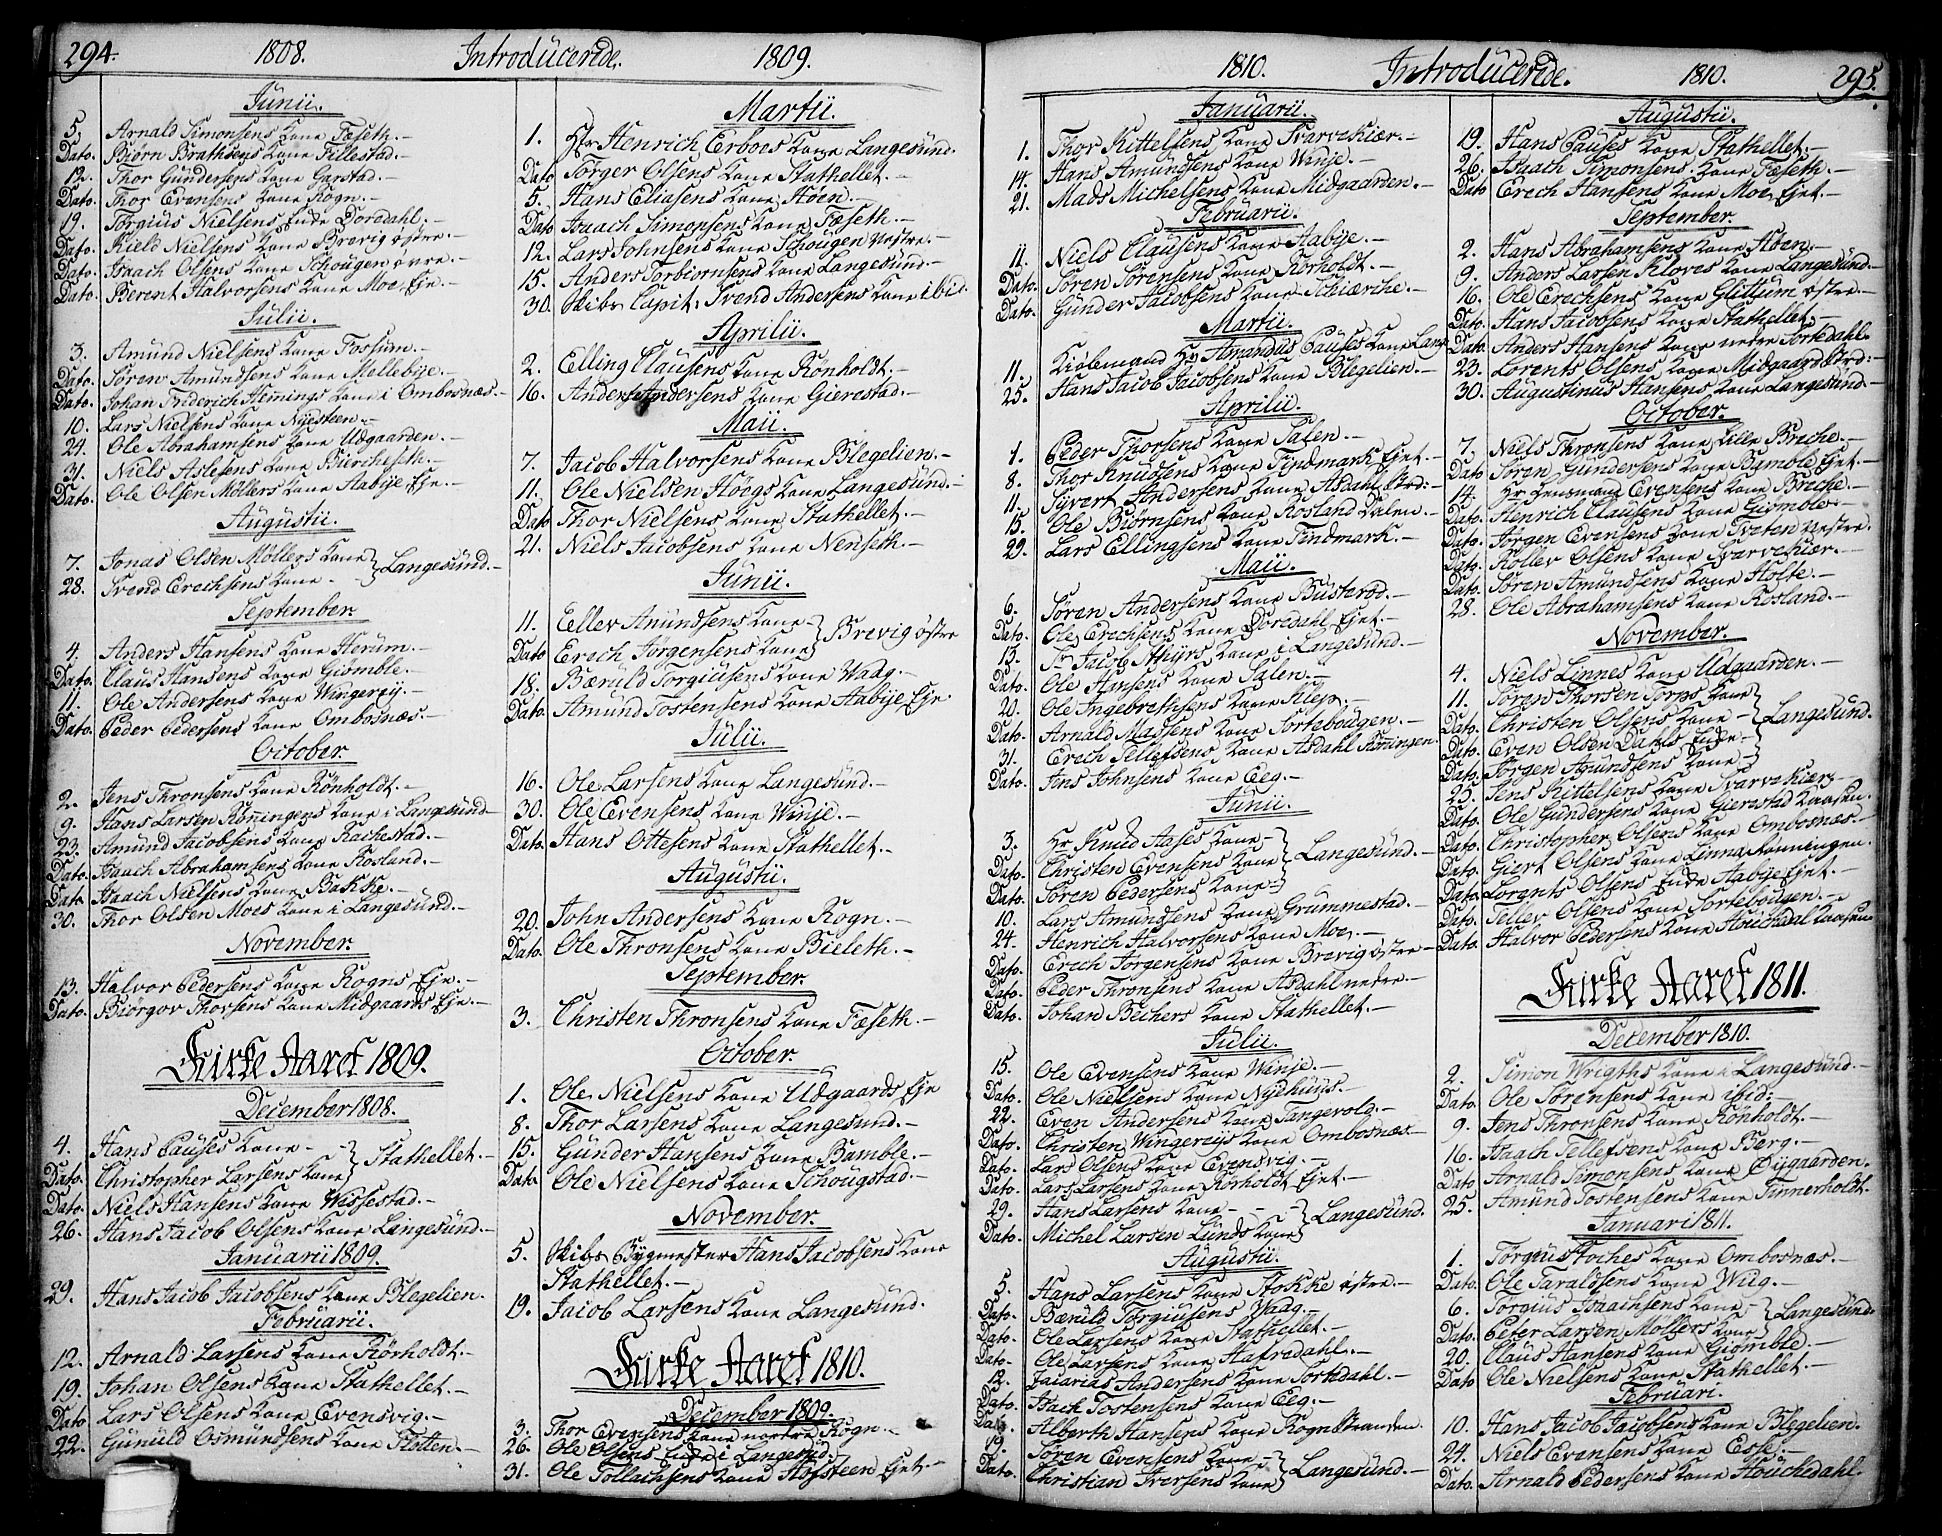 294.
1808.
Introducerede.
1809.
Junii.
5. Arnald Simonsens Kone Fæseth.-
Dato. Biørn Brathsens Kone Tillestad.-
12. Thor Gündersens Kone Garstad.-
Dato. Thor Evensens Kone Rogn.-
19. Torgiüs Nielsens Enke Dordahl.-
Dato. Kield Nielsens Kone Brevig østre.-
Dato. Isaach Olsens Kone Schougen øvre.-
Dato. Berent Halvorsens Kone Moe Eje.-
Julii.
3. Amünd Nielsens Kone Fossum.-
Dato. Søren Amündsens Kone Mellebye.-
Dato. Johan Friderich Flemings Kone i Ombosnæs.-
10. Lars Nielsens Kone Nysteen.-
24. Ole Abrahamsens Kone Udgaarden.-
31. Niels Aslesens Kone Biercheseth.-
Dato. Ole Olsen Möllers Kone Aabye Eje.-
Augustii.
7. Jonas Olsen Möllers Kone
28. Svend Erechsens Kone - } Langesünd.-
September.
4. Anders Hansens Kone Herum.-
Dato. Claus Hansens Kone Giömble.-
11. Ole Andersens Kone Wingereij.-
Dato. Peder Pedersens Kone Ombosnæs.-
October.
2. Jens Thronsens Kone Rönholdt.-
9. Hans Larsen Rönningens Kone i Langesünd-
23. Amünd Jacobsens Kone Rachestad.-
Dato. Isaach Abrahamsens Kone Rosland.-
Dato. Isaach Nielsens Kone Bakke.-
30. Thor Olsen Moes Kone i Langesünd.-
November.
13. Halvor Pedersens Kone Rogns Eje.-
Dato. Biörgor Thorsens Kone Midgaards Eje.-
Kirke Aaret 1809.
December 1808.
4. Hans Pauses Kone -
Dato. Christopher Larsens Kone } Stathellet.-
Dato. Niels Hansens Kone Wissestad.-
26. Hans Jacob Olsens Kone Langesünd.-
Januarii 1809.
29. Hans Jacob Jacobsens Kone Blegelien.
Februarii.
12. Arnald Larsens Kone Rörholdt.-
19. Johan Olsens Kone Stathellet.-
Dato Lars Olsens Kone Evensvig.-
22. Gunüld Osmündsens Kone Slotten.-
Martii.
1. Hr Henrich Erboes Kone Langesünd.
Dato Torger Olsens Kone Stathellet.-
5. Hans Eliasens Kone Höen.-
Dato Isaach Simonsens Kone Fæseth.-
12. Lars Johnsens Kone Schougen Vestre.-
15. Anders Torbiornsens Kone Langesünd.-
30. Skibs Capit: Svend Andersens Kone ibid.
Aprilii.
2. Elling Clausens Kone Rönholdt.-
16. Anders Andersens Kone Gierestad.-
Maii.
7. Jacob Halvorsens Kone Blegelien.-
11. Ole Nielsen Höegs Kone Langesünd.-
Dato Thor Nielsens Kone Stathellet.-
21. Niels Jacobsens Kone Nenseth.-
Junii.
11. Ellev Amündsens Kone -
Dato Erech Jørgensens Kone } Brevig østre
18. Bærüld Torgiüsens Kone Waag.-
Dato. Amünd Tostensens Kone Aabye Eje
Julii.
16. Ole Larsens Kone Langesünd.-
30. Ole Evensens Kone Winje.-
Dato. Hans Ottesens Kone Stathellet.-
Augustii.
20. John Andersens Kone Rogn.-
Dato. Ole Thronsens Kone Bieleth.-
September.
3. Christen Thronsens Kone Fæseth.-
October.
1. Ole Nielsens Kone Udgaards Eje
8. Thor Larsens Kone Langesund.-
15. Günder Hansens Kone Bamble.-
Dato. Ole Nielsens Kone Schougstad.-
November.
5. Skibs Bygmester Hans Jacobsens Kone
Stathellet.-
19. Jacob Larsens Kone Langesünd.
Kirke Aaret 1810.
December 1809.
3. Thor Evensens Kone nordre Rogn.-
26. Ole Olsens Enke i Langesünd.-
31. Ole Tollachsens Kone Aafsteen Ejet.-
1810.
Introducerede.
1810.
295.
Januarii.
1. Thor Kittelsens Kone Svarvekiær.-
14. Hans Amündsens Kone Winje.-
21. Mads Michelsens Kone Midgaarden.-
Februarii.
11. Niels Clausens Kone Aabije.-
Dato. Søren Sørensens Kone Rørholdt.-
Dato. Günder Jacobsens Kone Schiærche.-
Martii.
11. Kiöbmand Hr Amandus Pauses Kone Lang.
25. Hans Jacob Jacobsens Kone Blegelien.-
Aprilii.
1. Peder Thorsens Kone Salen.-
8. Thor Knudsens Kone Findmark Ejet.-
11. Syvert Andersens Kone Asdahl Strd:-
15. Ole Biörnsens Kone Rosland Dalen.-
29. Lars Ellingsens Kone Findmark.-
Maii.
6. Søren Andersens Kone Busterød.-
Dato. Ole Erechsens Kone Dordahl Ejet.-
13. Sr Jacob Athijrs Kone i Langesund.-
Dato. Ole Hansens Kone Salen.-
20. Ole Ingebrethsens Kone Klep.-
Dato. Arnald Massens Kone Sortebougen.-
31. Erech Tellefsens Kone Asdahl Rönningen.
Dato. Jens Johnsens Kone Eeg.-
Junii.
3. Hr Knud Aases Kone -
Dato. Christen Evensens Kone } Langesünd.-
Dato. Søren Pedersens Kone -
10. Lars Amündsens Kone Grummestad.-
24. Henrich Halvorsens Kone Moe.-
Dato. Erech Jørgensens Kone Brevig østre -
Dato. Peder Thronsens Kone Asdahl nedre.-
Dato. Johan Bechers Kone Stathellet.-
Julii.
15. Ole Evensens Kone Winje.-
Dato. Ole Nielsens Kone Nyehuus.-
22. Even Andersens Kone Tangevolg.-
Dato. Christen Wingereijs Kone Ombosnæs.-
Dato. Lars Olsens Kone Evensvig.-
Dato. Lars Larsens Kone Rörholdt Ejet.-
29. Hans Larsens Kone - - -
Dato. Michel Larsen Lunds Kone } Langesund.
Augustii.
5. Hans Larsens Kone Stokke østre.-
Dato. Bærüld Torgiüsens Vaag.-
Dato. Ole Larsens Kone Stathellet.-
Dato. Ole Larsens Kone Hafredahl.-
12. Zacarias Andersens Kone Sorkdahl.-
Dato. Isach Tostensens Kone Eeg.-
Dato. Alberth Hansens Kone Rogn Stranden
19. Søren Evensens Kone -
Dato. Christian Iversens Kone } Langesünd.-
Augustii.
19. Hans Pauses Kone Stathellet.-
26. Isaach Simonsens Kone Fæseth.-
Dato Erech Hansens Kone Moe Ejet.-
September.
2. Hans Abrahamsens Kone Aaen.-
9. Anders Larsen Kloves Kone Langesünd.-
16. Ole Erechsens Kone Glittum østre.-
Dato. Hans Jacobsens Kone Stathellet.-
Dato. Anders Hansens Kone nedre Sorkedahl.
23. Lorents Olsens Kone Midgaard Strd:-
30. Augustinus Hansens Kone Langesünd.-
October.
7. Niels Thronsens Kone Lille Breche.-
Dato Søren Gundersens Kone Bamble Ejet.-
14. Hr Lensmand Evensens Kone Breche.-
Dato. Henrich Clausens Kone Giømble.-
Dato. Jørgen Evensens Kone Tveten Vestre.
Dato. Roller Olsens Kone Svarvekiær.-
Dato. Søren Amündsens Kone Holte.-
28. Ole Abrahamsens Kone Rosland.-
November.
4. Niels Linnes Kone Udgaarden.-
11. Søren Thorsen Torps Kone
Dato. Christen Olsens Kone -
Dato. Even Olsen Dahls Enke - } Langesünd.
Dato. Jørgen Amündsens Kone
25. Jens Kittelsens Kone Svarvekiær.-
Dato. Ole Gündersens Kone Gierestad Kaasen.
Dato. Christopher Olsens Kone Ombosnæs.-
Dato. Giert Olsens Kone Linna Rönningen.
Dato. Lorents Olsens Enke Aabye Ejet.-
Dato. Tellev Olsens Kone Sortebougen.-
Dato. Halvor Pedersens Kone Houchedal Kaasen
Kirke Aaret 1811.
December 1810.
2. Simon Wrigths Kone i Langesünd.-
Dato. Ole Sørensens Kone ibid:-
9. Jens Thronsens Kone Rönholdt.-
16. Isaach Tellefsens Kone Berg.-
Dato Arnald Simonsens Kone Øygaarden.
25. Amünd Tostensens Kone Tinnerholdt.
Januari 1811.
1. Torgius Stoches Kone Ombosnæs.-
Dato. Ole Taraldsens Kone Wiig.-
6. Torgius Isaachsens Kone -
Dato. Peter Larsen Mollers Kone } Langesünd.
20. Claus Hansens Kone Giomble.-
Dato Ole Nielsens Kone Stathellet.-
Februari.
10. Hans Jacob Jacobsens Kone Blegelien.
24. Niels Evensens Kone Esse.-
Dato. Arnald Pedersens Kone Houchedahl.